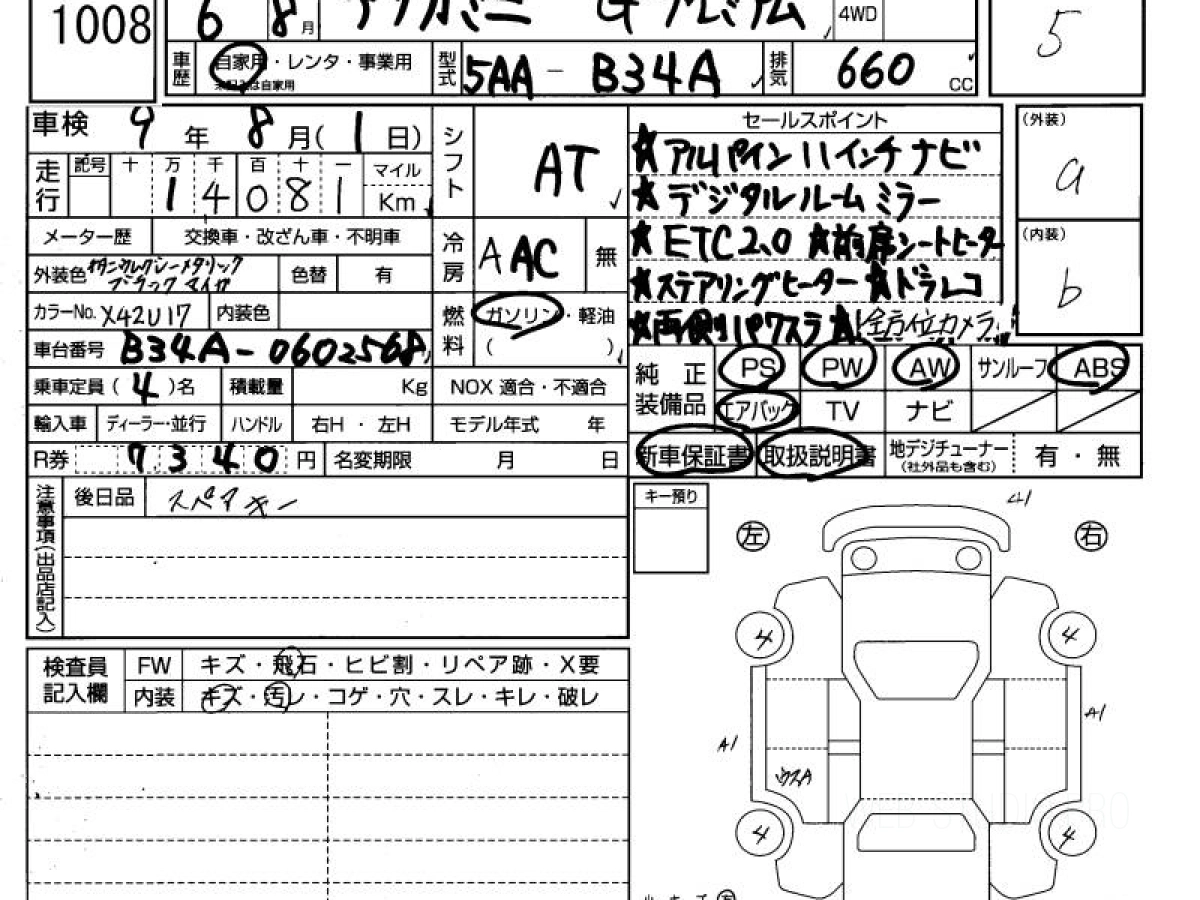 1008
6 8月 デリカミニ Gプレミアム 4WD
5
車歴 自家用・レンタ・事業用
未記入は自家用
型式 5AA - B34A
排気 660 cc
車検 9年 8月(1日)
走行 記号 十 万 千 百 十 一 マイル
1 4 0 8 1 Km
メーター歴 交換車・改ざん車・不明車
外装色 チタニウムグレーメタリック
ブラックマイカ
色替 有
カラーNo. X42U17 内装色
車台番号 B34A-0602568
乗車定員(4)名 積載量 Kg NOX 適合・不適合
輸入車 ディーラー・並行 ハンドル 右H・左H モデル年式 年
R券 7340円 名変期限 月 日
シフト AT
冷房 A AC 無
燃料 ガソリン・軽油
( )
セールスポイント
★アルパイン11インチナビ
★デジタルルームミラー
★ETC2.0 ★前席シートヒーター
★ステアリングヒーター ★ドラレコ
★両側パワスラ ★全方位カメラ
(外装)
a
(内装)
b
純正装備品 PS PW AW サンルーフ ABS
エアバック TV ナビ
新車保証書 取扱説明書 地デジチューナー (社外品も含む) 有・無
注意事項(出品店記入)
後日品 スペアキー
キー預り
左 右
4 4
A1 A1
ウスA
4 4
検査員記入欄
FW キズ・飛石・ヒビ割・リペア跡・X要
内装 キズ・汚レ・コゲ・穴・スレ・キレ・破レ